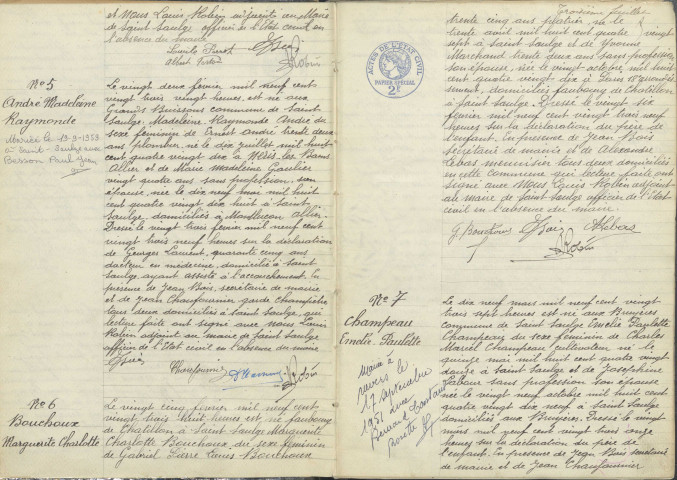 et Nous Louis Robin adjoint au Maire
de Saint Saulge officier de l'état civil en
l'absence du maire
Nº 5
André Madeleine
Raymonde
Mariée le 19-9-1953
à Saint-Saulge avec
Basson Paul
Le vingt deux février mil neuf cent
vingt trois vingt heures, est née aux
Grands Buissons commune de Saint
Saulge, Madeleine Raymonde André du
sexe féminin de Ernest André trente deux
ans plombier, né le dix juillet mil huit
cent quatre vingt dix à Néris les Bains
Allier et de Marie Madeleine Gaulier
vingt quatre ans sans profession son
épouse, née le dix neuf mai mil huit
cent quatre vingt dix huit à Saint
Saulge domiciliés à Montluçon Allier.
Dressé le vingt trois février mil neuf cent
vingt trois neuf heures sur la déclaration
de Georges Laurent, quarante cinq ans
docteur en médecine, domicilié à Saint
Saulge, ayant assisté à l'accouchement. En
présence de Jean Bois, secrétaire de mairie
et de Jean Chaufournier garde champêtre
tous deux domiciliés à Saint Saulge, qui
lecture faite ont signé avec nous Louis
Robin adjoint au maire de Saint Saulge
officier de l'état civil en l'absence du maire
Nº 6
Bouchoux
Marguerite Charlotte
Le vingt cinq février mil neuf cent
vingt trois huit heures est née faubourg
de Châtillon à Saint Saulge Marguerite
Charlotte Bouchoux du sexe féminin
de Gabriel Pierre Louis Bouchoux
Troisième feuillet
trente cinq ans né le
trente avril mil huit cent quatre vingt
sept à Saint Saulge et de Yvonne
Marchand trente deux ans sans profession
son épouse, née le vingt octobre mil huit
cent quatre vingt dix à
domiciliés faubourg de Châtillon
à Saint Saulge. Dressé le vingt six
février mil neuf cent vingt trois neuf
heures sur la déclaration du père de
l'enfant. En présence de Jean Bois
secrétaire de mairie et de Alexandre
Lebas menuisier tous deux domiciliés
en cette commune qui lecture faite ont
signé avec Nous Louis Robin adjoint
au maire de Saint Saulge officier de l'état
civil en l'absence du maire.
G. Bouchoux Bois ALebas
Robin
ACTES DE L'ÉTAT CIVIL
PAPIER SPÉCIAL
2F
Nº 7
Champeau
Emilie Paulotte
Mariée à
Nevers le
17 septembre
1951 avec
Le dix neuf mars mil neuf cent vingt
trois sept heures est née aux Bruyères
commune de Saint Saulge Emilie Paulotte
Champeau du sexe féminin de Charles
Marcel Champeau cultivateur né le
quinze mai mil huit cent quatre vingt
douze à Saint Saulge et de Joséphine
sans profession son épouse
née le vingt neuf octobre mil huit cent
quatre vingt dix neuf à Saint Saulge
domiciliés aux Bruyères. Dressé le vingt
mars mil neuf cent vingt trois onze
heures sur la déclaration du père de
l'enfant. En présence de Jean Bois secrétaire
de mairie et de Jean Chaufournier